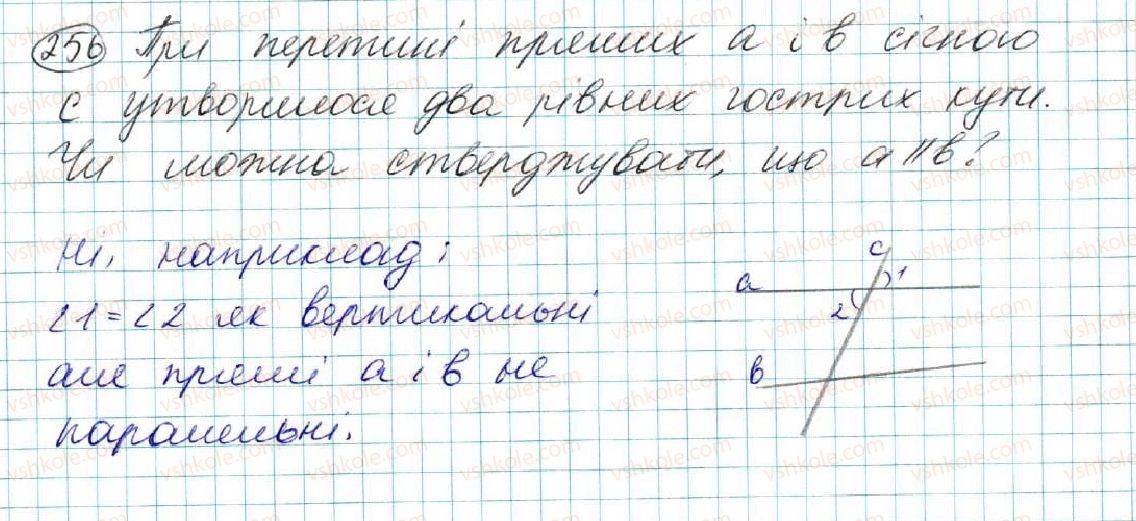 256 При перетині прямих а і в січною
с утворилося два рівних гострих кути.
Чи можна стверджувати, що а || в?
Ні, наприклад:
∠1 = ∠2 як вертикальні
але прямі а і в не
паралельні.
с
а
1
2
в
vshkole.com